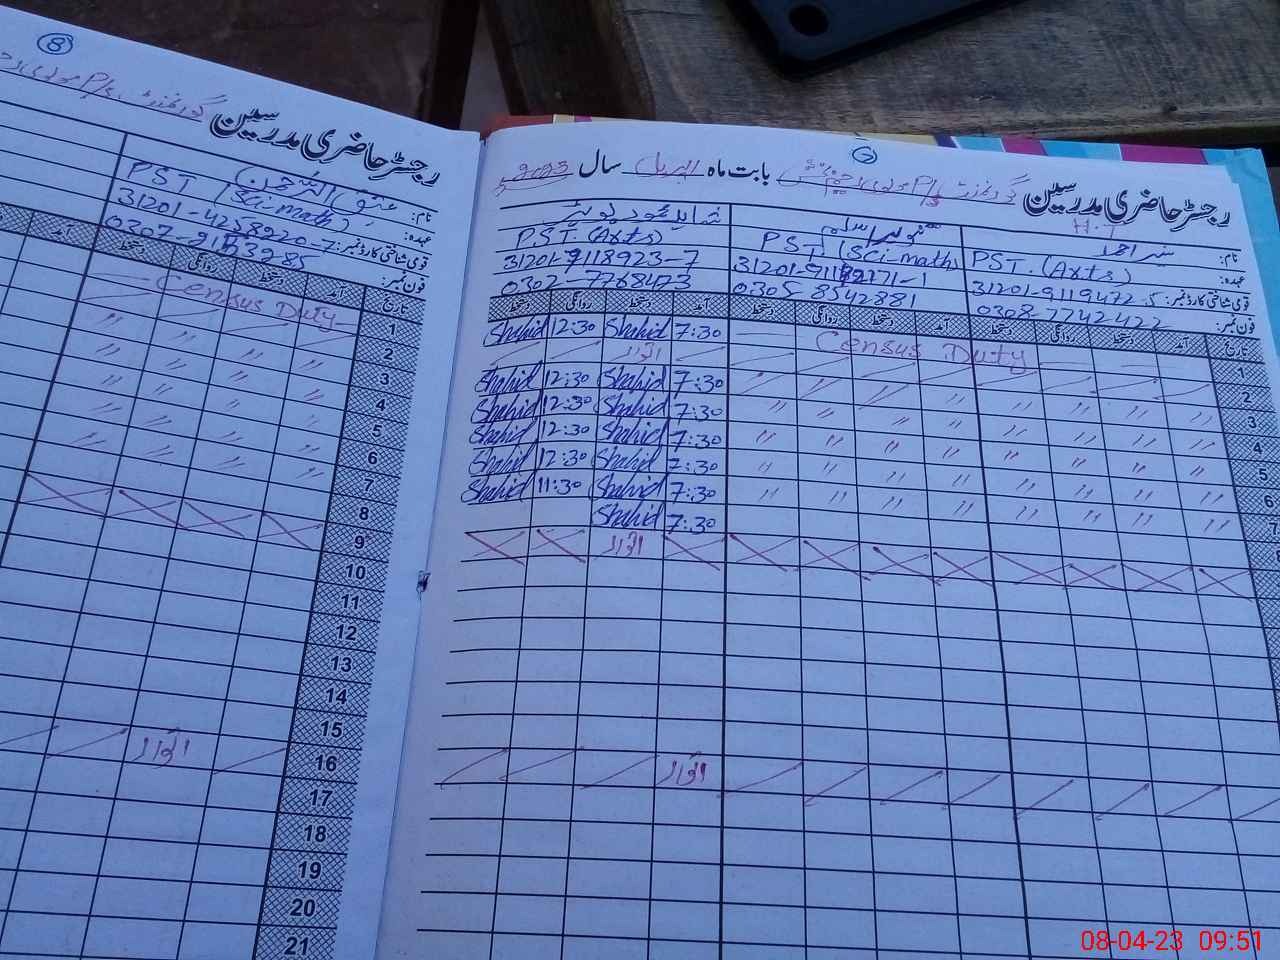 8
رجسٹر حاضری مدرسین گورنمنٹ P/S
نام: عتیق الرحمن
عہدہ: PST (Sci-math)
قومی شناختی کارڈ نمبر: 31201-4258920-7
فون نمبر:
تاریخ آمد دستخط روانگی دستخط آمد
Census Duty
1
2
3
4
5
6
7
8
9
10
11
12
13
14
15
16 اتوار
17
18
19
20
21
رجسٹر حاضری مدرسین گورنمنٹ P/S بابت ماہ اپریل سال 2023
H.T
نام:
عہدہ: PST. (Arts) PST. (Sci-math) P.S.T. (Arts)
قومی شناختی کارڈ نمبر: 31201-9119472-5 31201-9118923-7
فون نمبر: 0308-7742422 0305-8542881 0302-7768473
تاریخ آمد دستخط روانگی دستخط آمد دستخط روانگی دستخط آمد دستخط روانگی دستخط
1 Census Duty 7:30 Shahid 12:30 Shahid
2 اتوار
3 " " " " " " " " 7:30 Shahid 12:30 Shahid
4 " " " " " " " " 7:30 Shahid 12:30 Shahid
5 " " " " " " " " 7:30 Shahid 12:30 Shahid
6 " " " " " " " " 7:30 Shahid 12:30 Shahid
7 " " " " " " " " 7:30 Shahid 11:30 Shahid
7:30 Shahid
اتوار
اتوار
08-04-23 09:51